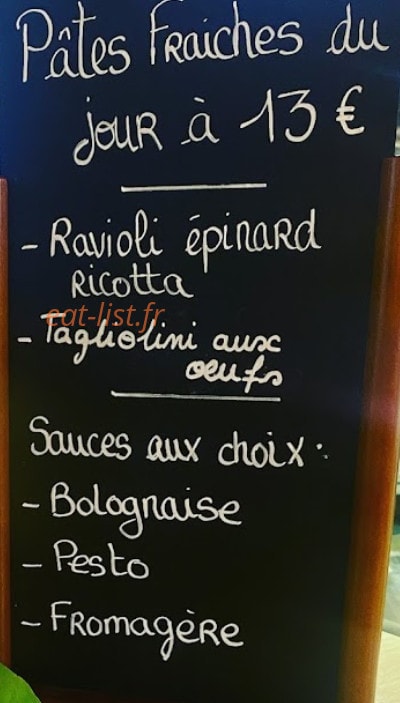 Pâtes Fraiches du
jour à 13 €
- Ravioli épinard
Ricotta
eat-list.fr
- Tagliolini aux
oeufs
Sauces aux choix :
- Bolognaise
- Pesto
- Fromagère